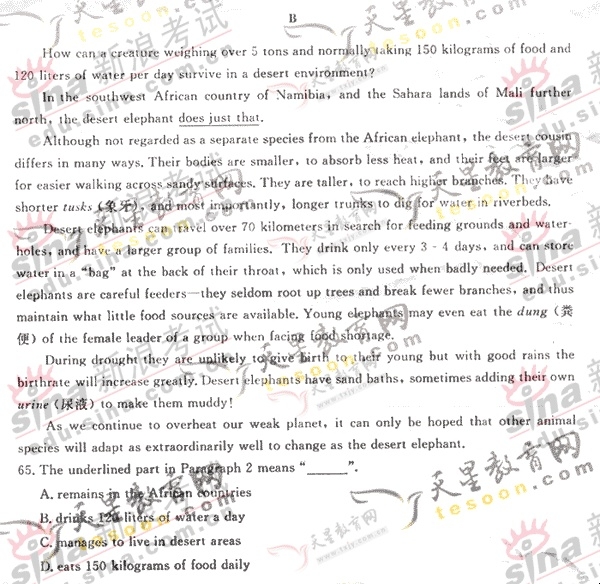 B
How can a creature weighing over 5 tons and normally taking 150 kilograms of food and
120 liters of water per day survive in a desert environment?
In the southwest African country of Namibia, and the Sahara lands of Mali further
north, the desert elephant does just that.
Although not regarded as a separate species from the African elephant, the desert cousin
differs in many ways. Their bodies are smaller, to absorb less heat, and their feet are larger
for easier walking across sandy surfaces. They are taller, to reach higher branches. They have
shorter tusks (象牙), and most importantly, longer trunks to dig for water in riverbeds.
Desert elephants can travel over 70 kilometers in search for feeding grounds and water-
holes, and have a larger group of families. They drink only every 3 - 4 days, and can store
water in a "bag" at the back of their throat, which is only used when badly needed. Desert
elephants are careful feeders—they seldom root up trees and break fewer branches, and thus
maintain what little food sources are available. Young elephants may even eat the dung (粪
便) of the female leader of a group when facing food shortage.
During drought they are unlikely to give birth to their young but with good rains the
birthrate will increase greatly. Desert elephants have sand baths, sometimes adding their own
urine (尿液) to make them muddy!
As we continue to overheat our weak planet, it can only be hoped that other animal
species will adapt as extraordinarily well to change as the desert elephant.
65. The underlined part in Paragraph 2 means "______".
A. remains in the African countries
B. drinks 120 liters of water a day
C. manages to live in desert areas
D. eats 150 kilograms of food daily
天星教育网
tesoon.com
sina 新浪考试
edu.sina